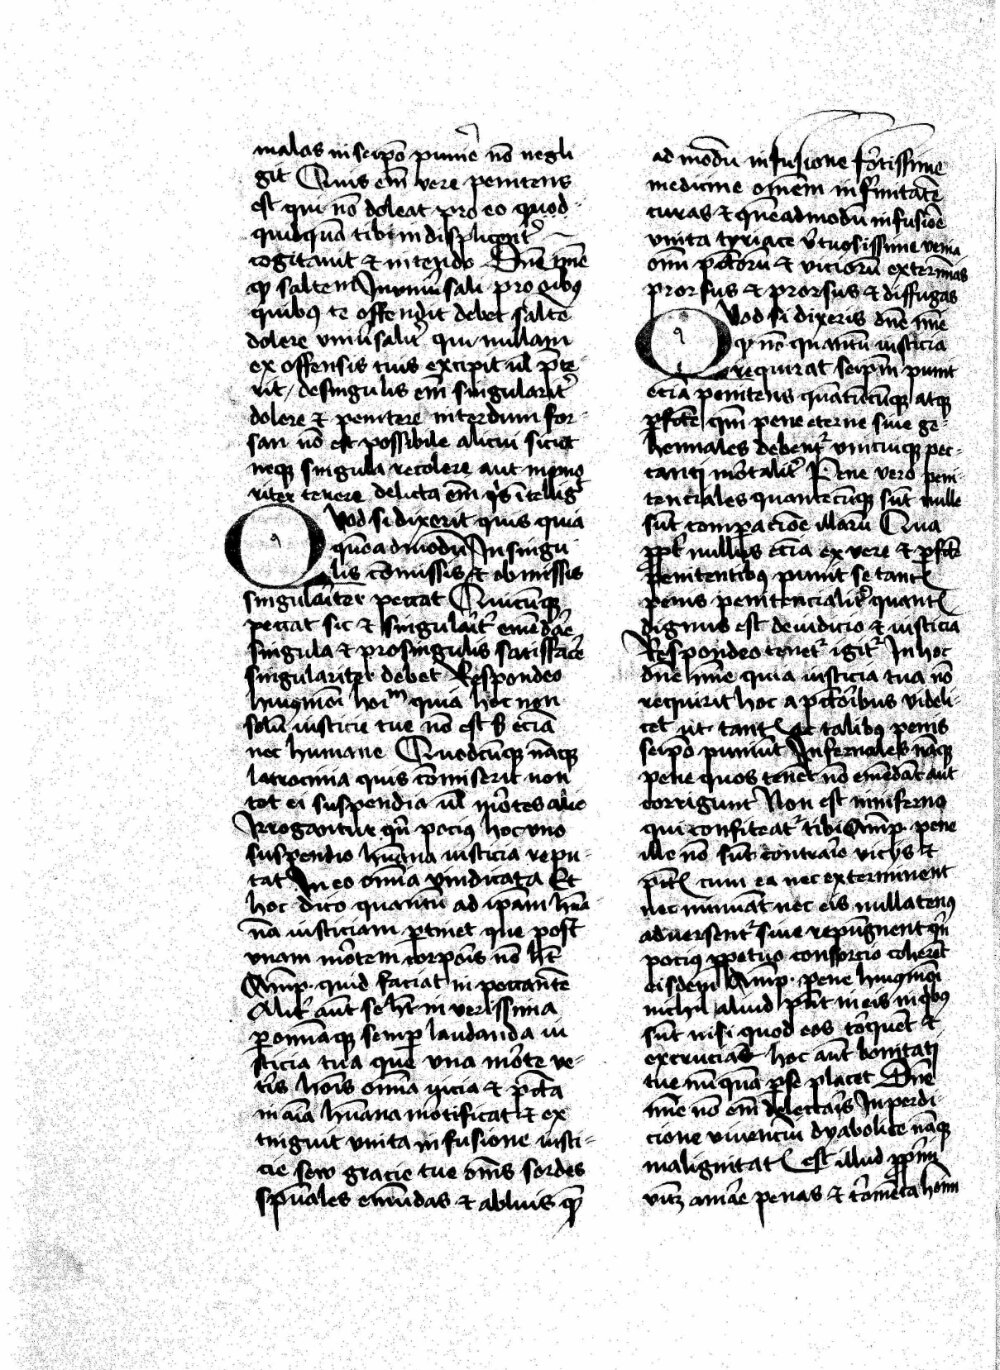 malos in seip̄o punire nō negli
git Quis em̄ vere penitens
est qui nō doleat pro eo quod
quidquā tibi in displicent̄
cogitauit et intendo Dn̄e mē
qꝫ saltem Inuniūsali pro qibꝫ
quibꝫ te offendit debet salte
dolere vniūsalit̄ qui nullam
ex offensis tuis excipit ul̄ p̄te
rit / de singulis em̄ singularit̄
dolere et penitere interdum for
san nō est possibile alicui sicut
neqꝫ singula recolere aut memo
riter tenere delicta em̄ q̇s ītelligͭ
Quod si dixerit quis quia
quēadmodū In singu
lis cōmissis et obmissis
singulāiter peccat Quicūqꝫ
peccat sic et singulāit̄ emēdāe
singula et pro singulis satisfāce
singulariter debet Respondeo
huiꝰmōi hoīm quia hoc non
solū iusticie tue nō est s̄ eciā
nec humane Quodcūqꝫ nāqꝫ
latrocinia quis cōmiserit non
tot ei suspendia ul̄ mōrtes alie
Irrogantur qn̄ pociꝰ hoc vno
suspendio hūana iusticia repu
tat In eo omīa vindicata Et
hoc dico quantū ad ip̄am hūa
nā iusticiam ꝑtinet que post
vnam mōrtem corpōis nō hꝫt
Amp̄ · quid faciat in peccantē
Alit̄ aūt se hꝫt in verissima
ꝑ omniaqꝫ semꝑ laudanda iu
sticia tua que vna mōrte ve
tīs hōis omīa vicia et p̄ctā
in aīa hūana mōtificat et ex
tinguit vnita infusione iusti
cie sew gracie tue om̄s sordes
spūales emūdas et abluis qꝫ
ad modū infusione fōrtissime
medicine omēm infirmitatē
curas et quēadmodū infusiōe
vnita tyriace v̄tuosissime venena
om̄i p̄ctōrū et viciorū exterminas
prorsus et prorsus et diffugas
Quod si dixeris dn̄e mē
qꝫ nō quantū iusticia
requirat seip̄m punit
eciā penitens quātūcūqꝫ atqꝫ
ꝑfc̄te qm̄ pene eterne siue ge
hennales debent̄ vnicuiqꝫ pec
canti mōrtalit̄ Pene vero peni
tenciales quantecūqꝫ sūt nulle
sūt compaciōe illarū Qua
ꝓpt̄ nullus eciā ex vere et ꝑfc̄te
penitentibꝫ punit se tantꝭ
penis penitencialit̄ quantꝭ
dignus est de iudicio et iusticia
Respondeo tenet̄ igit̄ In hoc
dn̄e mē quia iusticia tua nō
requirit hoc a p̄ctōibus videli
cet ut tantꝭ ac talibꝫ penis
seip̄os puniūt Infernales nāqꝫ
pene quos tenēt nō emēdāt aut
corrigunt Non est in inferno
qui confiteat̄ tibi Amp̄ · pene
ille nō sūt contrāie vicijs et
p̄ctꝭ cum ea nec exterminent
nec minuāt nec eis nullatenꝰ
aduersent̄ siue repūgnent qn̄
pociꝰ ꝑpetuo consorcio coherēt
eisdem Amp̄ · pene huiꝰmōi
nichil aliud p̄nt in eis in qibꝰ
sūt nisi quod eos tōrquēt et
excruciāt hoc aūt bonitati
tue nūquā ꝑ se placet Dn̄e
mē nō em̄ delectāis In perdi
cione viuenciū dyabolice nāqꝫ
malignitatꝭ est illud ꝓpīm
vn̄ꝫ amāe penas et tōmēta hoīm